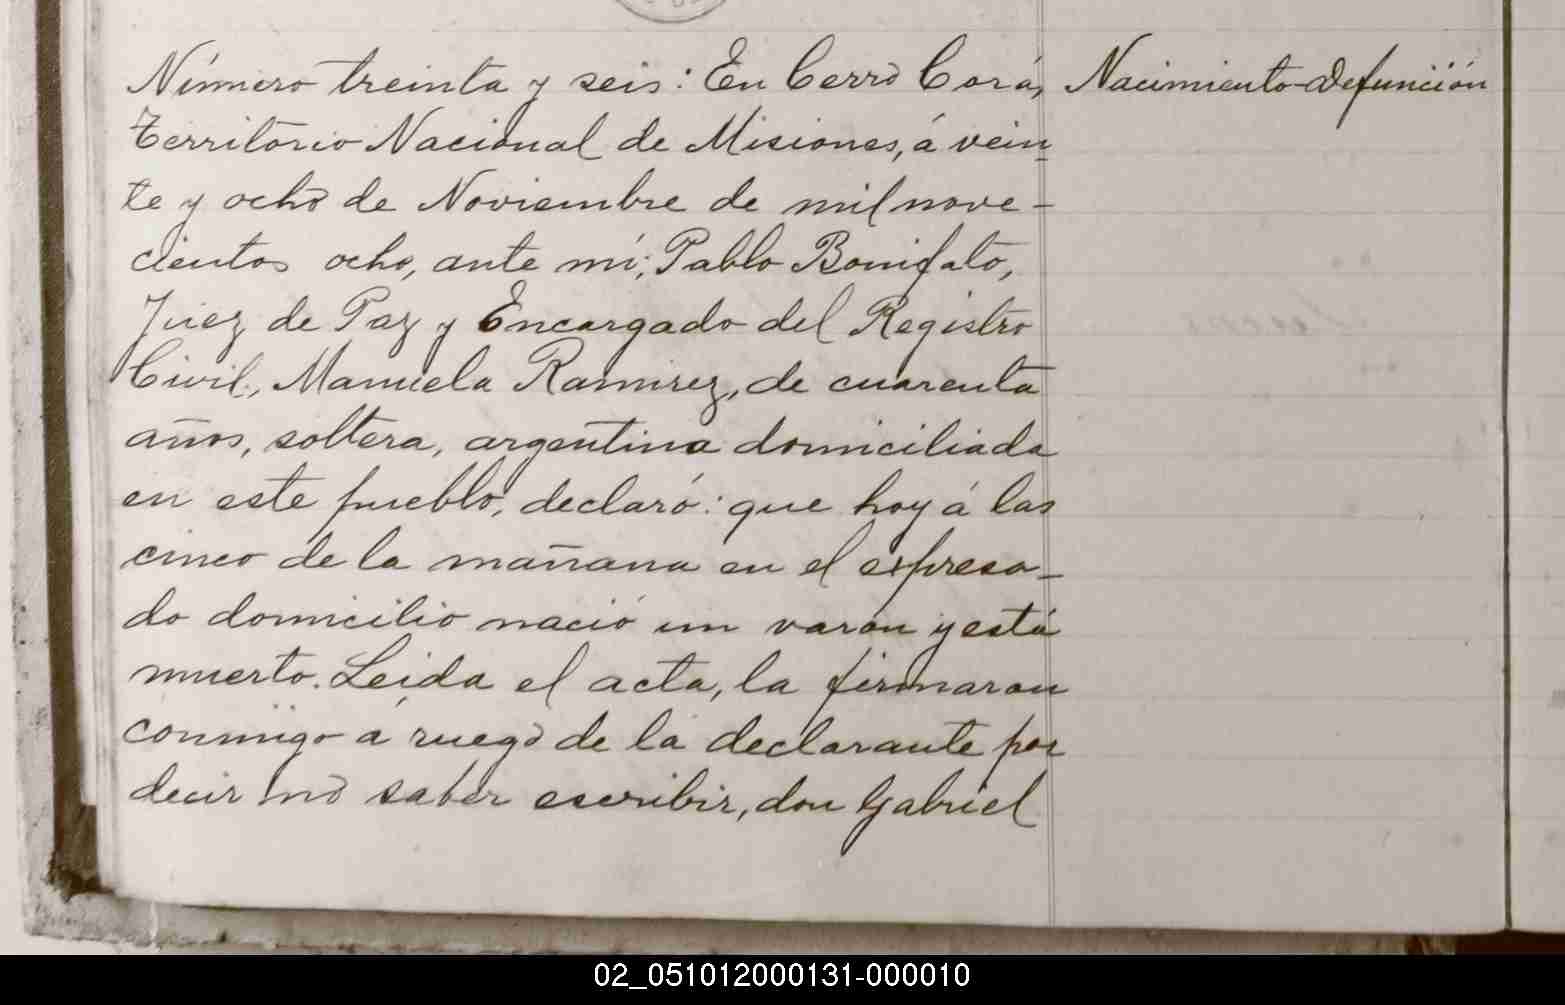 Número treinta y seis: En Cerro Corá, Nacimiento-Defunción
Territorio Nacional de Misiones, á vein-
te y ocho de Noviembre de mil nove-
cientos ocho, ante mí; Pablo Bonifato,
Juez de Paz y Encargado del Registro
Civil, Manuela Ramirez, de cuarenta
años, soltera, argentina domiciliada
en este pueblo, declaró: que hoy á las
cinco de la mañana en el expresa-
do domicilio nació un varon y está
muerto. Leida el acta, la firmaron
conmigo á ruego de la declarante por
decir no saber escribir, don Gabriel
02_051012000131-000010